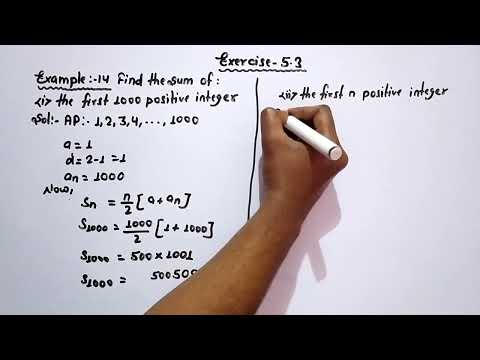 Exercise-5.3
Example:-14 Find the sum of:
(i) the first 1000 positive integer
Sol:- AP:- 1, 2, 3, 4, ..., 1000
a = 1
d = 2-1 = 1
an = 1000
Now,
Sn = n/2 [a + an]
S1000 = 1000/2 [1 + 1000]
S1000 = 500 × 1001
S1000 = 50050
(ii) the first n positive integer